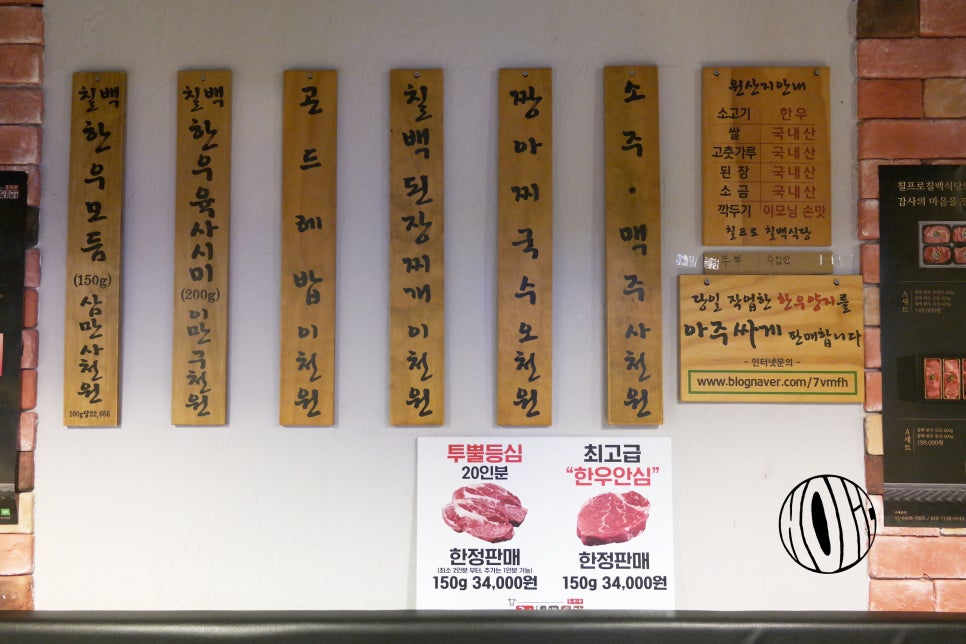 칠백
한우모듬
(150g)
삼만사천원
100g당22,666
칠백
한우육사시미
(200g)
이만구천원
곤드레밥이천원
칠백된장찌개이천원
짱아찌국수오천원
소주·맥주사천원
원산지안내
소고기 한우
쌀 국내산
고춧가루 국내산
된장 국내산
소금 국내산
깍두기 이모님 손맛
칠프로 칠백식당
두부 수입산
당일 작업한 한우양지를
아주싸게 판매합니다
- 인터넷문의 -
www.blognaver.com/7vmfh
투뿔등심
20인분
한정판매
(최소 2인분 부터, 추가는 1인분 가능)
150g 34,000원
최고급
“한우안심”
한정판매
150g 34,000원
칠프로칠백식당
감사의 마음을
A세트
149,000원
A세트
199,000원